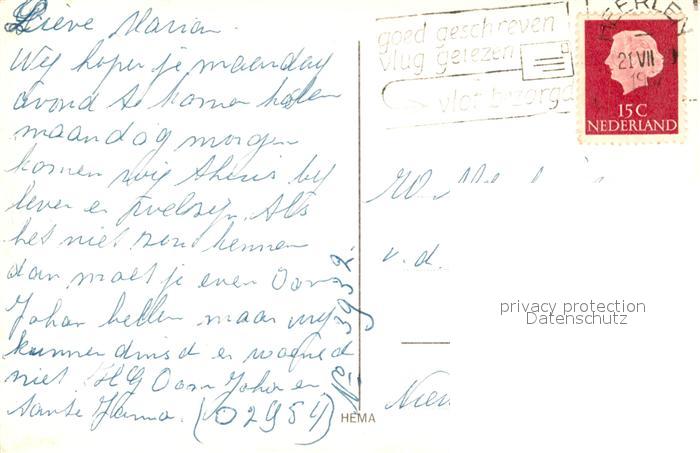 Lieve Marian.
Wij hopen je maandag
avond te komen halen
maandag morgen
komen wij thuis bij
leven en welzijn. Als
het niet zou kunnen
dan moet je even Oom
Johan bellen maar wij
kunnen dinsd en woensd
niet. HG Oom Johan en
tante Janna. (02954)
No 3932.
HEMA
goed geschreven
vlug gelezen
vlot bezorgd
HEERLEN
21 VII
15 C
NEDERLAND
v. d.
privacy protection
Datenschutz
Nieu